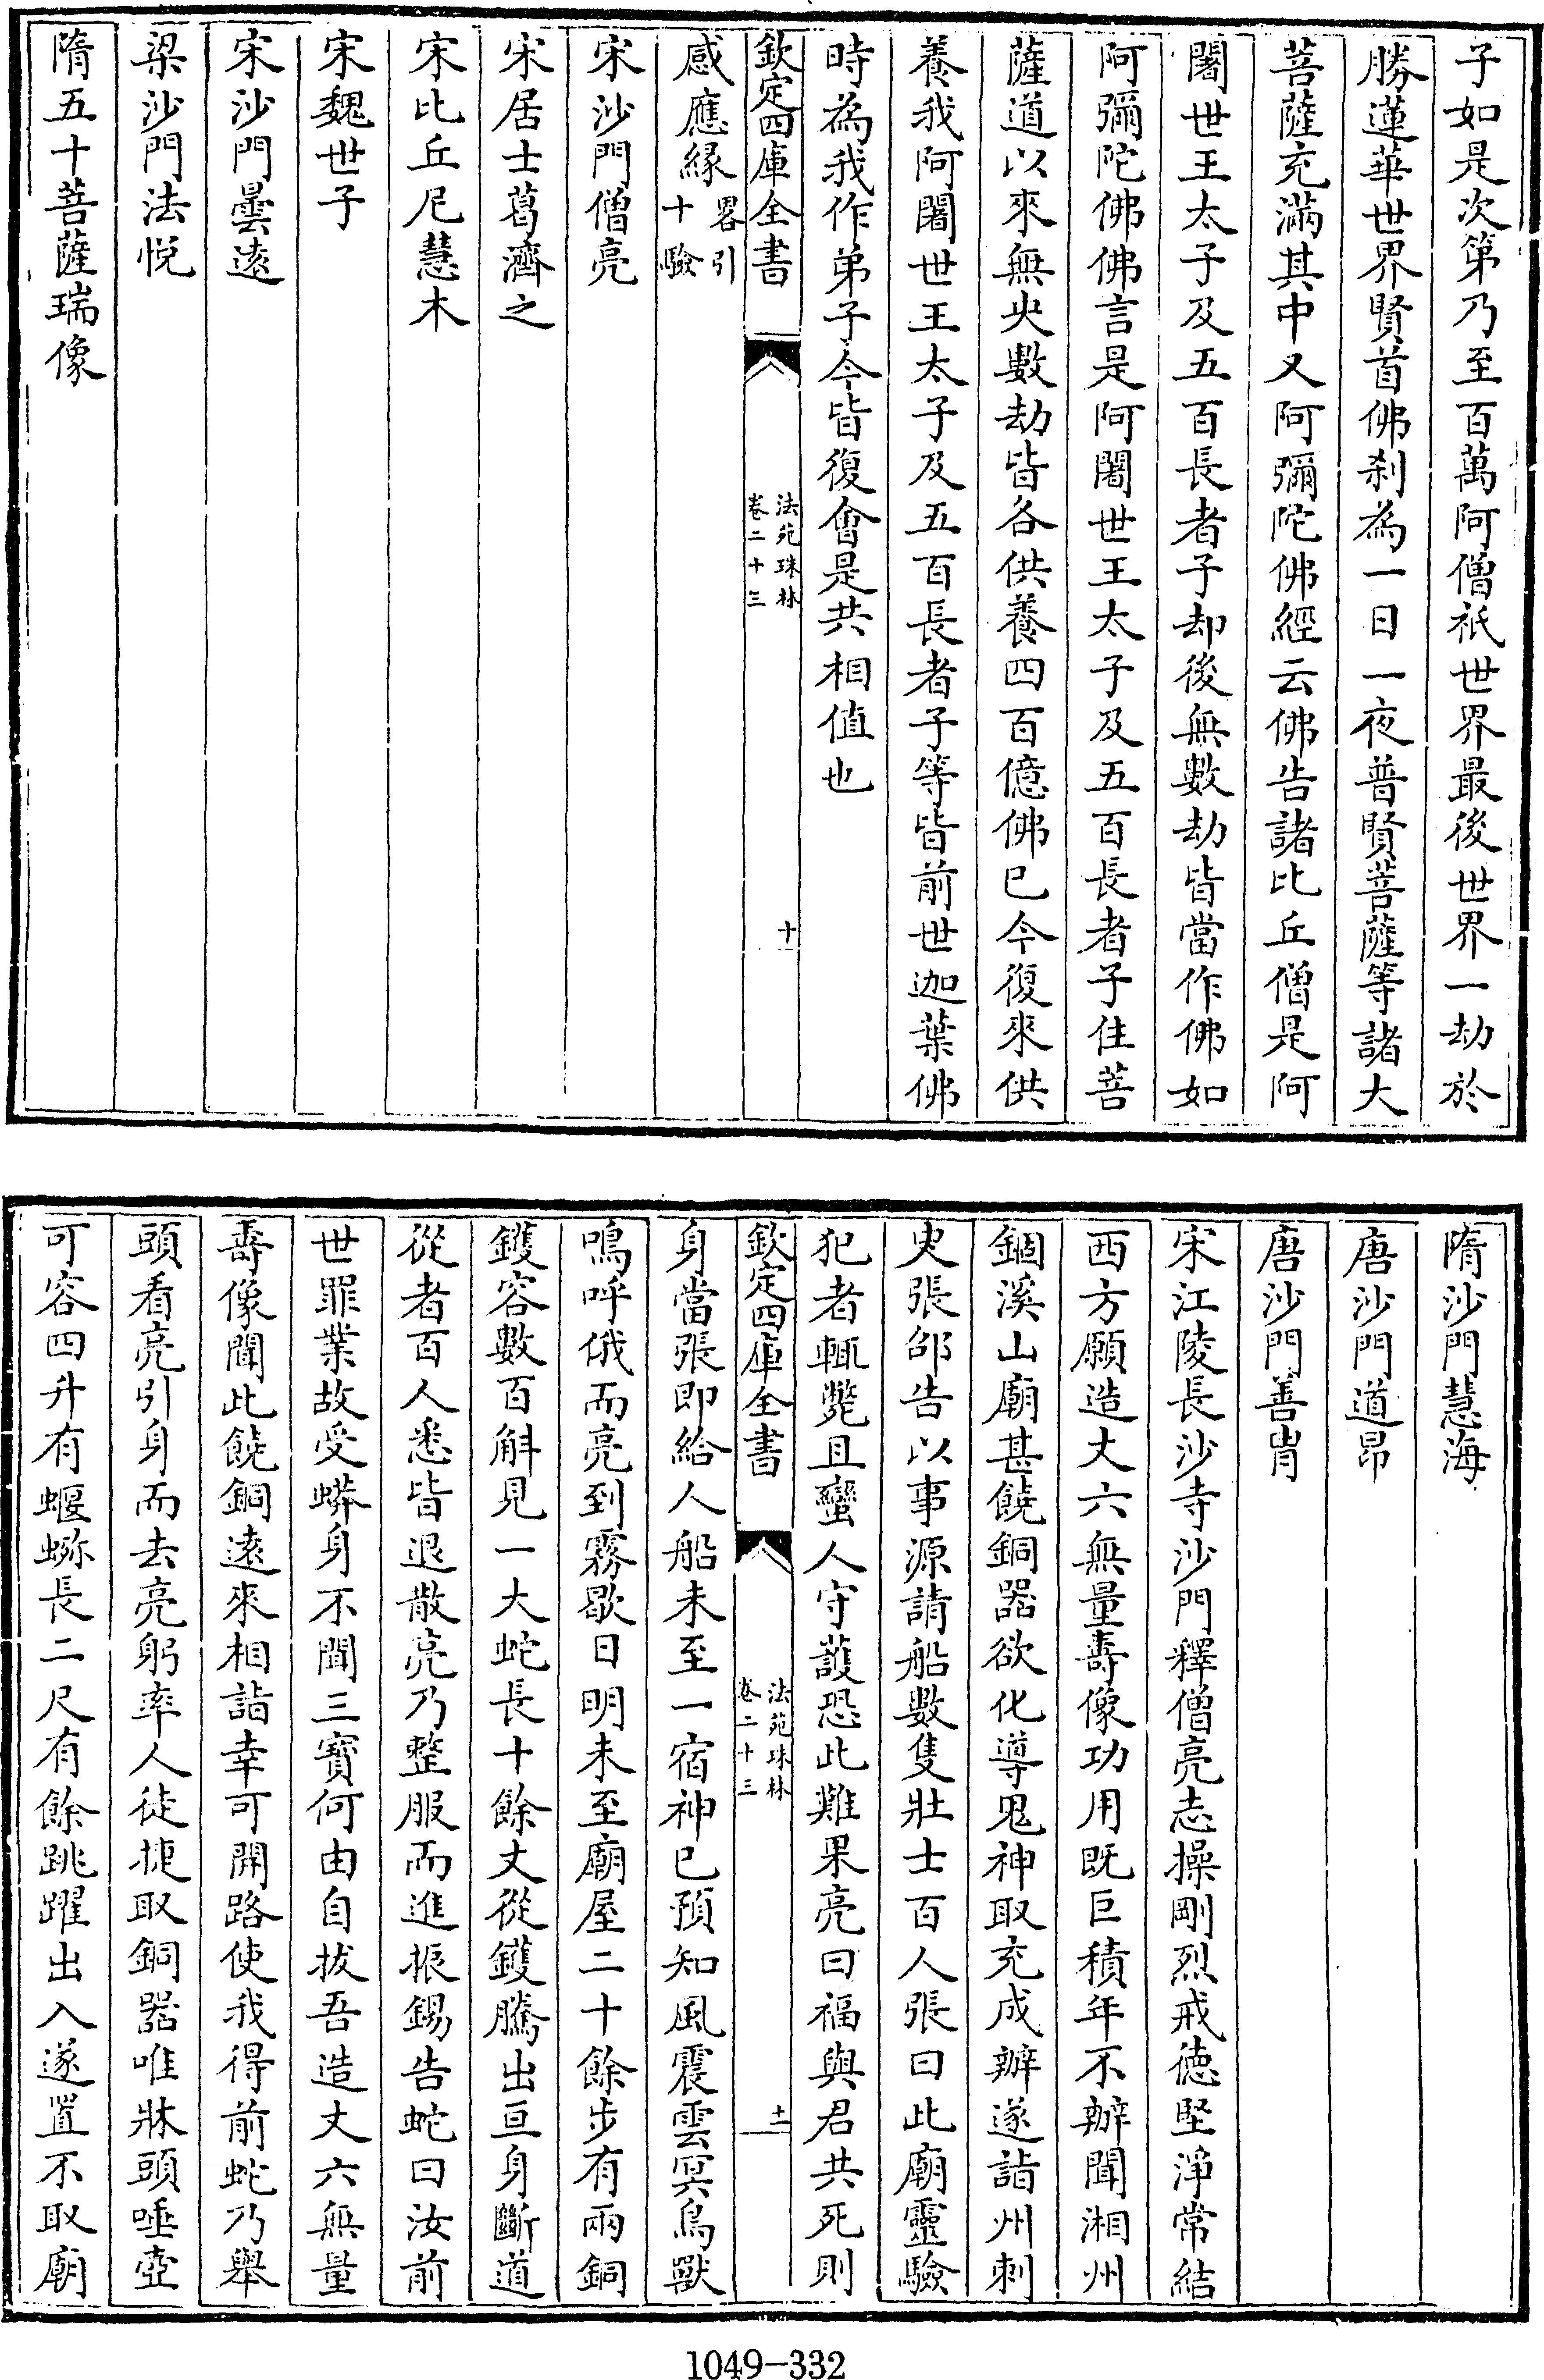 子如是次第乃至百萬阿僧祇世界最後世界一劫於
勝蓮華世界賢首佛刹為一日一夜普賢菩薩等諸大
菩薩充滿其中又阿彌陀佛經云佛告諸比丘僧是阿
闍世王太子及五百長者子却後無數劫皆當作佛如
阿彌陀佛佛言是阿闍世王太子及五百長者子住菩
薩道以來無央數劫皆各供養四百億佛已今復來供
養我阿闍世王太子及五百長者子等皆前世迦葉佛
時為我作弟子今皆復會是共相值也
欽定四庫全書
法苑珠林
卷二十三
十
感應緣畧引十驗
宋沙門僧亮
宋居士葛濟之
宋比丘尼慧木
宋魏世子
宋沙門曇遠
梁沙門法悅
隋五十菩薩瑞像
隋沙門慧海
唐沙門道昂
唐沙門善胄
宋江陵長沙寺沙門釋僧亮志操剛烈戒德堅淨常結
西方願造丈六無量壽像功用既巨積年不辦聞湘州
錮溪山廟甚饒銅器欲化導鬼神取充成辦遂詣州刺
史張邵告以事源請船數隻壯士百人張曰此廟靈驗
犯者輒斃且蠻人守護恐此難果亮曰福與君共死則
欽定四庫全書
法苑珠林
卷二十三
十一
身當張即給人船未至一宿神已預知風震雲冥鳥獸
鳴呼俄而亮到霧歇日明未至廟屋二十餘步有兩銅
鑊容數百斛見一大蛇長十餘丈從鑊騰出亘身斷道
從者百人悉皆退散亮乃整服而進振錫告蛇曰汝前
世罪業故受蟒身不聞三寶何由自拔吾造丈六無量
壽像聞此饒銅遠來相詣幸可開路使我得前蛇乃舉
頭看亮引身而去亮躬率人徒捷取銅器唯牀頭唾壺
可容四升有蝘蜓長二尺有餘跳躍出入遂置不取廟
1049-332